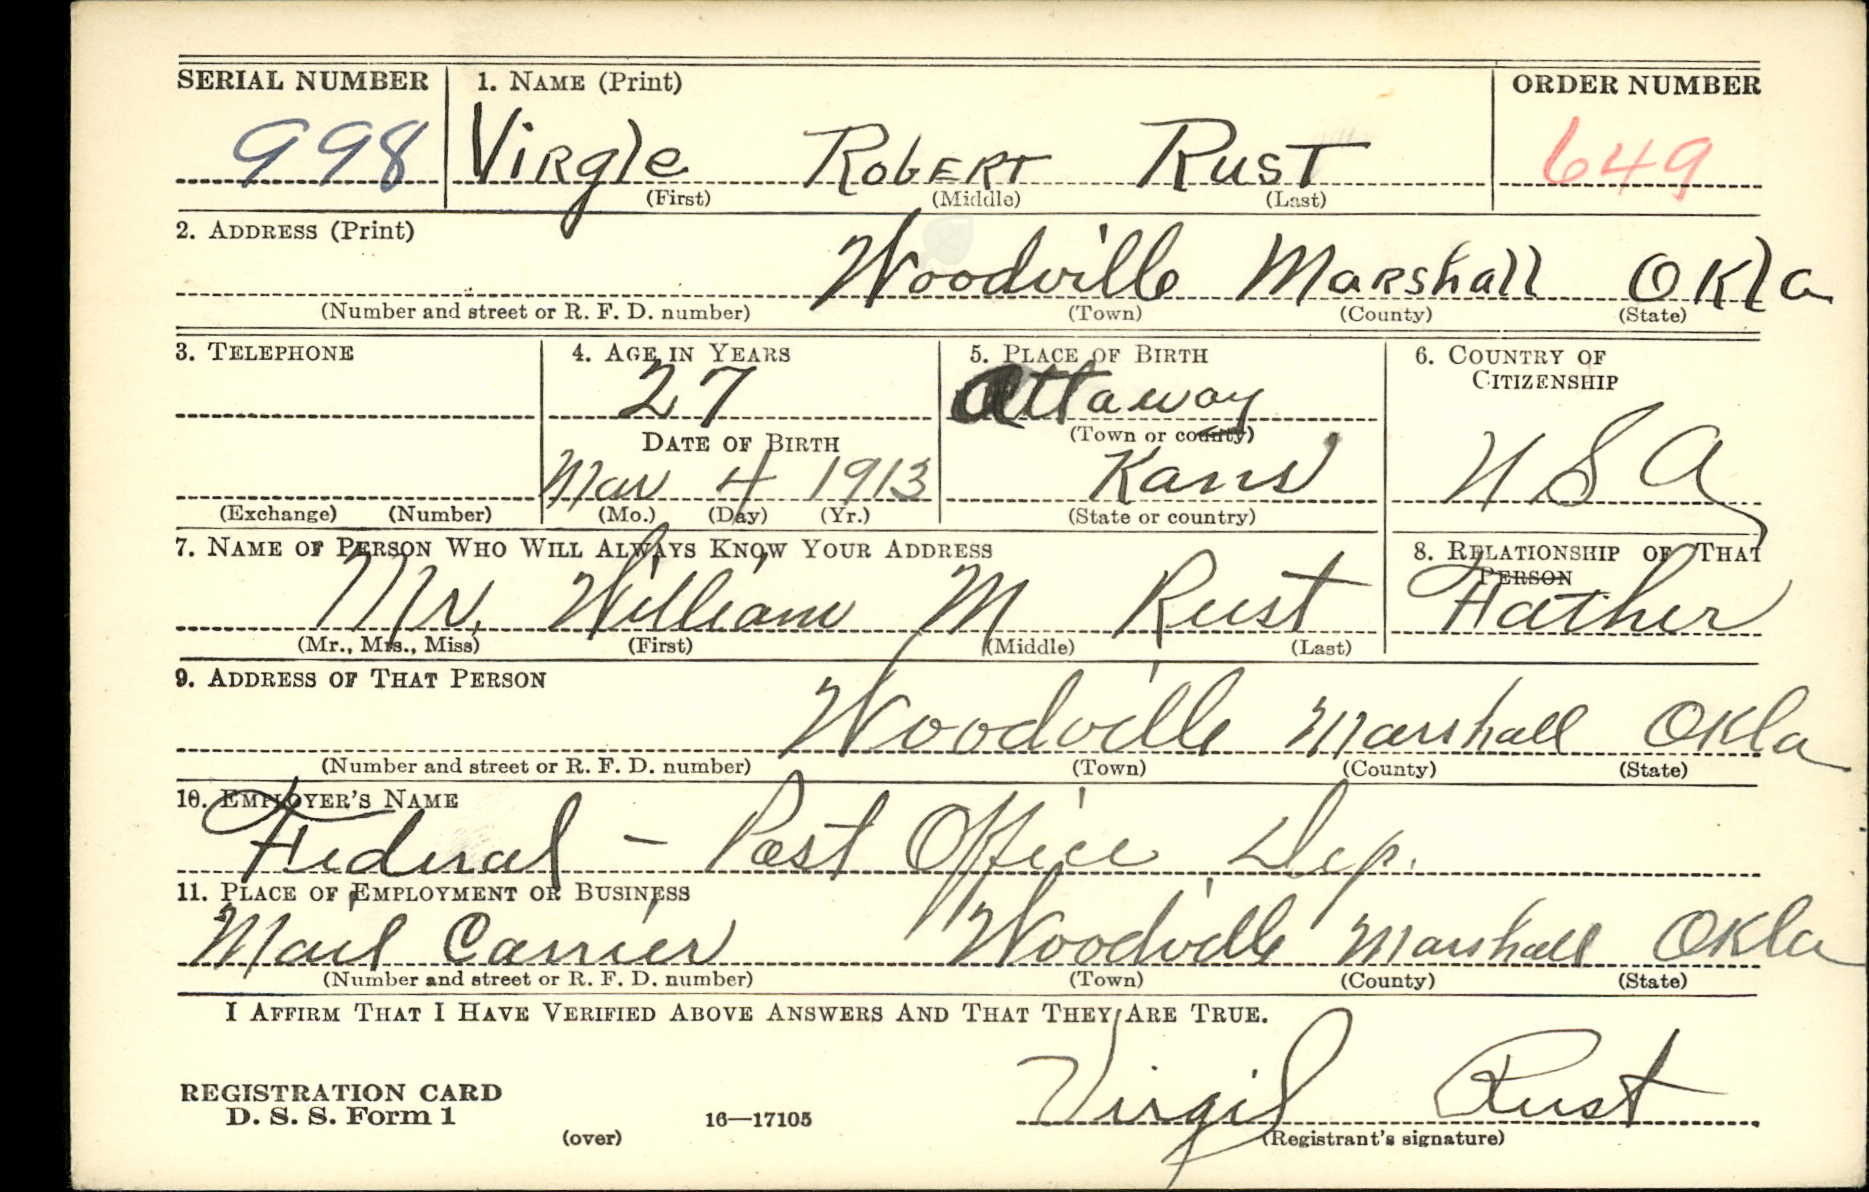 SERIAL NUMBER 1. NAME (Print) ORDER NUMBER
998 Virgle Robert Rust 649
(First) (Middle) (Last)
2. ADDRESS (Print)
Woodville Marshall Okla
(Number and street or R. F. D. number) (Town) (County) (State)
3. TELEPHONE 4. AGE IN YEARS 5. PLACE OF BIRTH 6. COUNTRY OF CITIZENSHIP
27 Attaway
DATE OF BIRTH (Town or county)
Mar 4 1913 Kans U S A
(Exchange) (Number) (Mo.) (Day) (Yr.) (State or country)
7. NAME OF PERSON WHO WILL ALWAYS KNOW YOUR ADDRESS 8. RELATIONSHIP OF THAT PERSON
Mr. William M Rust Father
(Mr., Mrs., Miss) (First) (Middle) (Last)
9. ADDRESS OF THAT PERSON
Woodville Marshall Okla
(Number and street or R. F. D. number) (Town) (County) (State)
10. EMPLOYER'S NAME
Federal - Post Office Dep.
11. PLACE OF EMPLOYMENT OR BUSINESS
Mail Carrier Woodville Marshall Okla
(Number and street or R. F. D. number) (Town) (County) (State)
I AFFIRM THAT I HAVE VERIFIED ABOVE ANSWERS AND THAT THEY ARE TRUE.
Virgil Rust
REGISTRATION CARD
D. S. S. Form 1 16—17105
(over) (Registrant's signature)